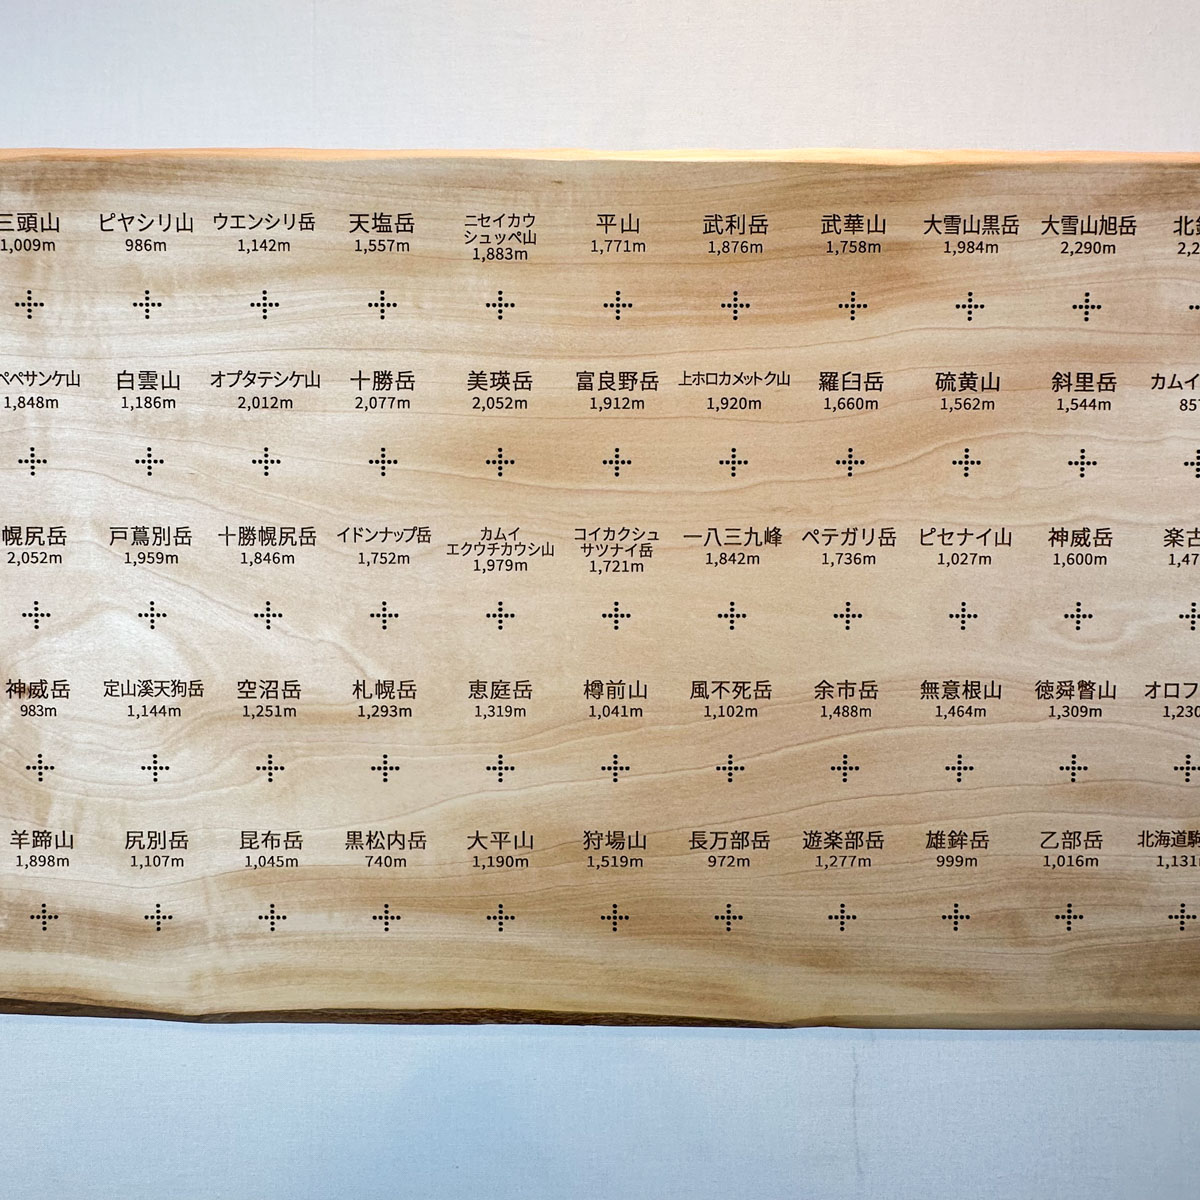 三頭山
1,009m
ピヤシリ山
986m
ウエンシリ岳
1,142m
天塩岳
1,557m
ニセイカウ
シュッペ山
1,883m
平山
1,771m
武利岳
1,876m
武華山
1,758m
大雪山黒岳
1,984m
大雪山旭岳
2,290m
北
2,2
ペペサンケ山
1,848m
白雲山
1,186m
オプタテシケ山
2,012m
十勝岳
2,077m
美瑛岳
2,052m
富良野岳
1,912m
上ホロカメットク山
1,920m
羅臼岳
1,660m
硫黄山
1,562m
斜里岳
1,544m
カムイ
857
幌尻岳
2,052m
戸蔦別岳
1,959m
十勝幌尻岳
1,846m
イドンナップ岳
1,752m
カムイ
エクウチカウシ山
1,979m
コイカクシュ
サツナイ岳
1,721m
一八三九峰
1,842m
ペテガリ岳
1,736m
ピセナイ山
1,027m
神威岳
1,600m
楽古
1,47
神威岳
983m
定山溪天狗岳
1,144m
空沼岳
1,251m
札幌岳
1,293m
恵庭岳
1,319m
樽前山
1,041m
風不死岳
1,102m
余市岳
1,488m
無意根山
1,464m
徳舜瞥山
1,309m
オロフ
1,230
羊蹄山
1,898m
尻別岳
1,107m
昆布岳
1,045m
黒松内岳
740m
大平山
1,190m
狩場山
1,519m
長万部岳
972m
遊楽部岳
1,277m
雄鉾岳
999m
乙部岳
1,016m
北海道駒
1,131